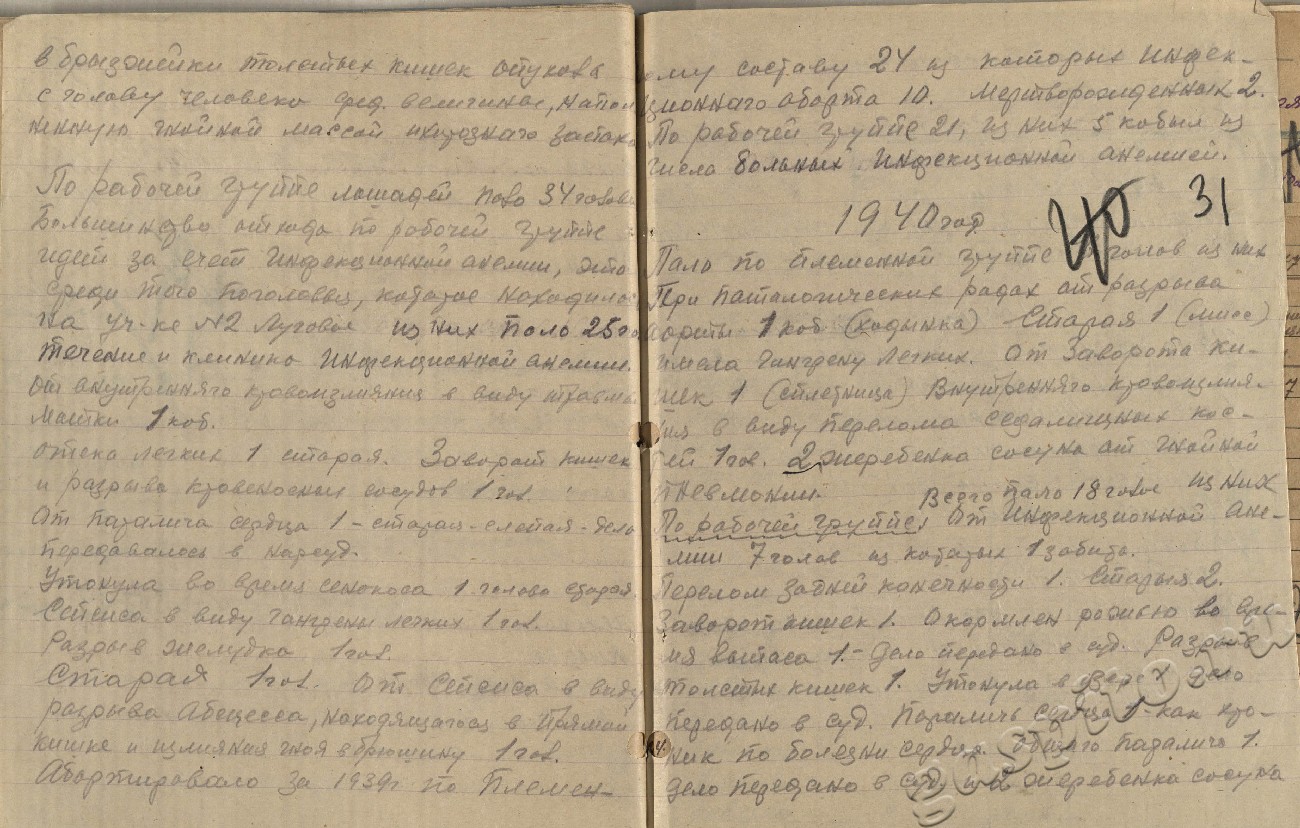 в брызжейки толстых кишек опухоль
с голову человека сред. величины, напол
ненную гнойной массой икрознаго
По рабочей группе лошадей пало 34 голов
Большинство отхода по рабочей группе
идёт за счёт Инфекционной анемии, это
среди того поголовья, которое находилось
на уч-ке №2 Луговое из них пало 25 го
течение и клинико Инфекционной анемии.
От внутреннего кровоизлияния в виду травмы
матки 1 коб.
отека легких 1 старая. Заворот кишек
и разрыва кровеносных сосудов 1 гол.
От паралича сердца 1 - старая - слепая - дело
передавалось в нарсуд.
Утонула во время сенокоса 1 голова старая.
Сепсиса в виду гангрены легких 1 гол.
Разрыв желудка 1 гол.
Старая 1 гол. От Сепсиса в виду
разрыва Абсцесса, находящагося в Прямой
кишке и излияния гноя в брюшину 1 гол.
Абортировало за 1939г по Племен-
ному составу 24 из которых Инфек-
ционнаго аборта 10. Мертворожденных 2.
По рабочей группе 21, из них 5 кобыл из
числа больных Инфекционной анемией.
31
1940 год
40
Пало по племенной группе голов из них
При паталогических родах от разрыва
аорты 1 коб (Ходынка) Старая 1 (мисс)
имела Гангрену Легких. От Заворота ки-
шек 1 (сплетница) Внутренняго кровоизлия-
ния в виду перелома седалищных кос-
тей 1 гол. 2 жеребенка сосуна от гнойной
пневмонии.
Всего пало 18 голов из них
По рабочей группе, От Инфекционной Ане-
мии 7 голов из которых 1 забита.
Перелом задней конечности 1. Старыя 2.
Заворот кишек 1. Окормлен рожью во вре-
мя выпаса 1. - Дело передано в суд. Разрыв
толстых кишек 1. Утонула в дело
передано в суд. Параличь сердца 1 - как хро-
ник по болезни сердца. Общего параличь 1.
Дело передано в суд. жеребенка сосуна